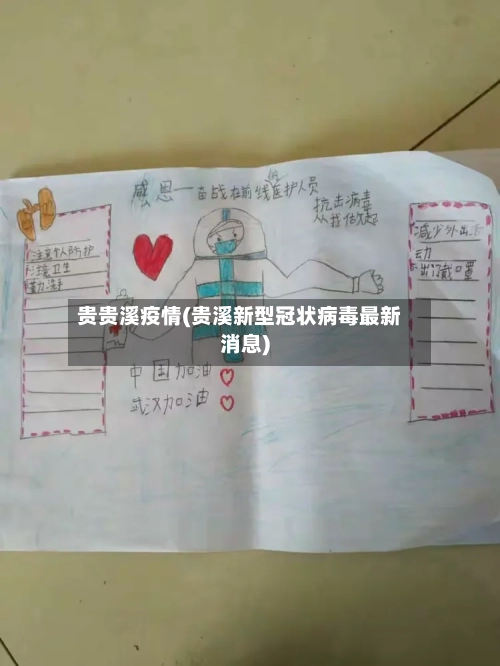 感恩一奋战在前线的医护人员
抗击病毒
从我做起
注意个人防护
环境卫生
勤洗手
减少外出活
动
出门戴口罩
贵贵溪疫情(贵溪新型冠状病毒最新
消息)
中国加油
武汉加油